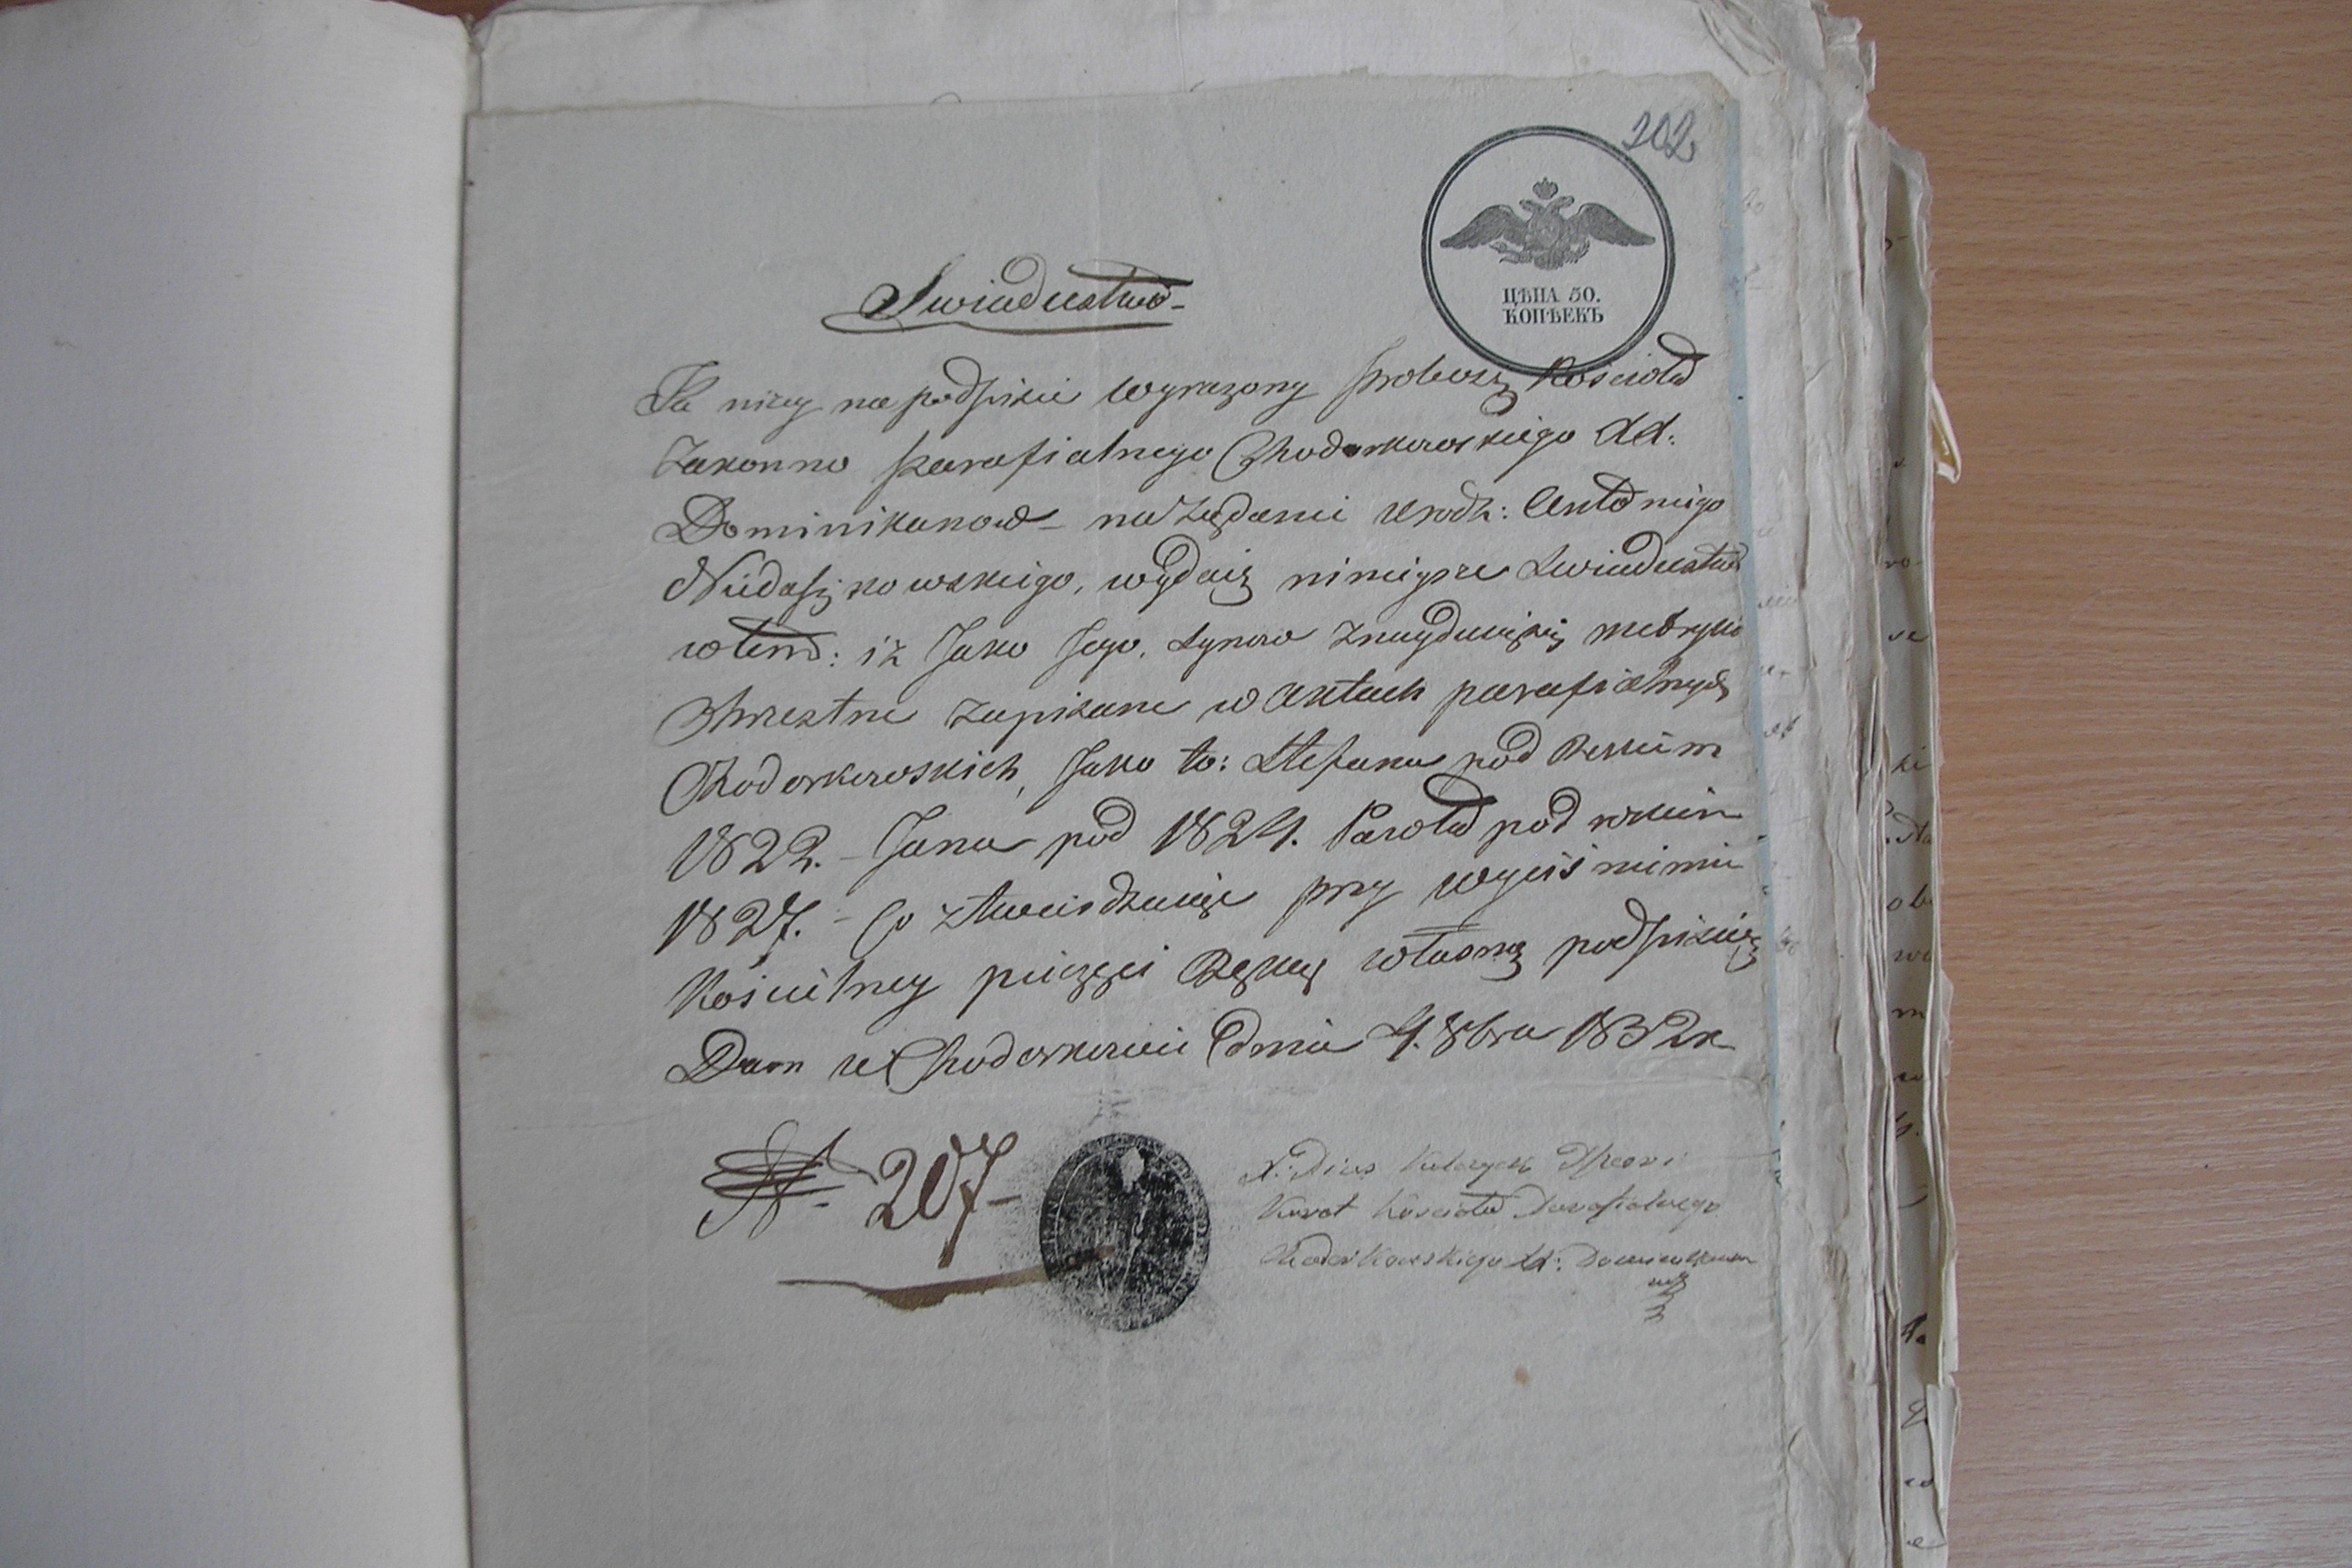 202
ЦѢНА 50.
КОПѢЕКЪ
Swiadectwo
Ja niżey na podpisie wyrażony Proboszcz Kościoła
Zakonno Parafialnego Chodorkowskiego XX:
Dominikanow na żądanie Urodz: Antoniego
Niedaszkowskiego, wydaię ninieysze Swiadectwo
w tem: iż Jako Jego Synow znayduią się metryki
Chrzestne zapisane w Aktach parafialnych
Chodorkowskich, Jako to: Stefana pod Rokiem
1822. - Jana pod 1824. Karola pod rokiem
1827. - Co ztwierdzaiąc przy wyciśnieniu
Kościelney pieczęci Ręką własną podpisuię
Dan w Chodorkowie dnia 4. 8bra 1832 r.
N 207
X: Pius
Kurat Kościoła Parafialnego
Chodorkowskiego XX: Dominikanow